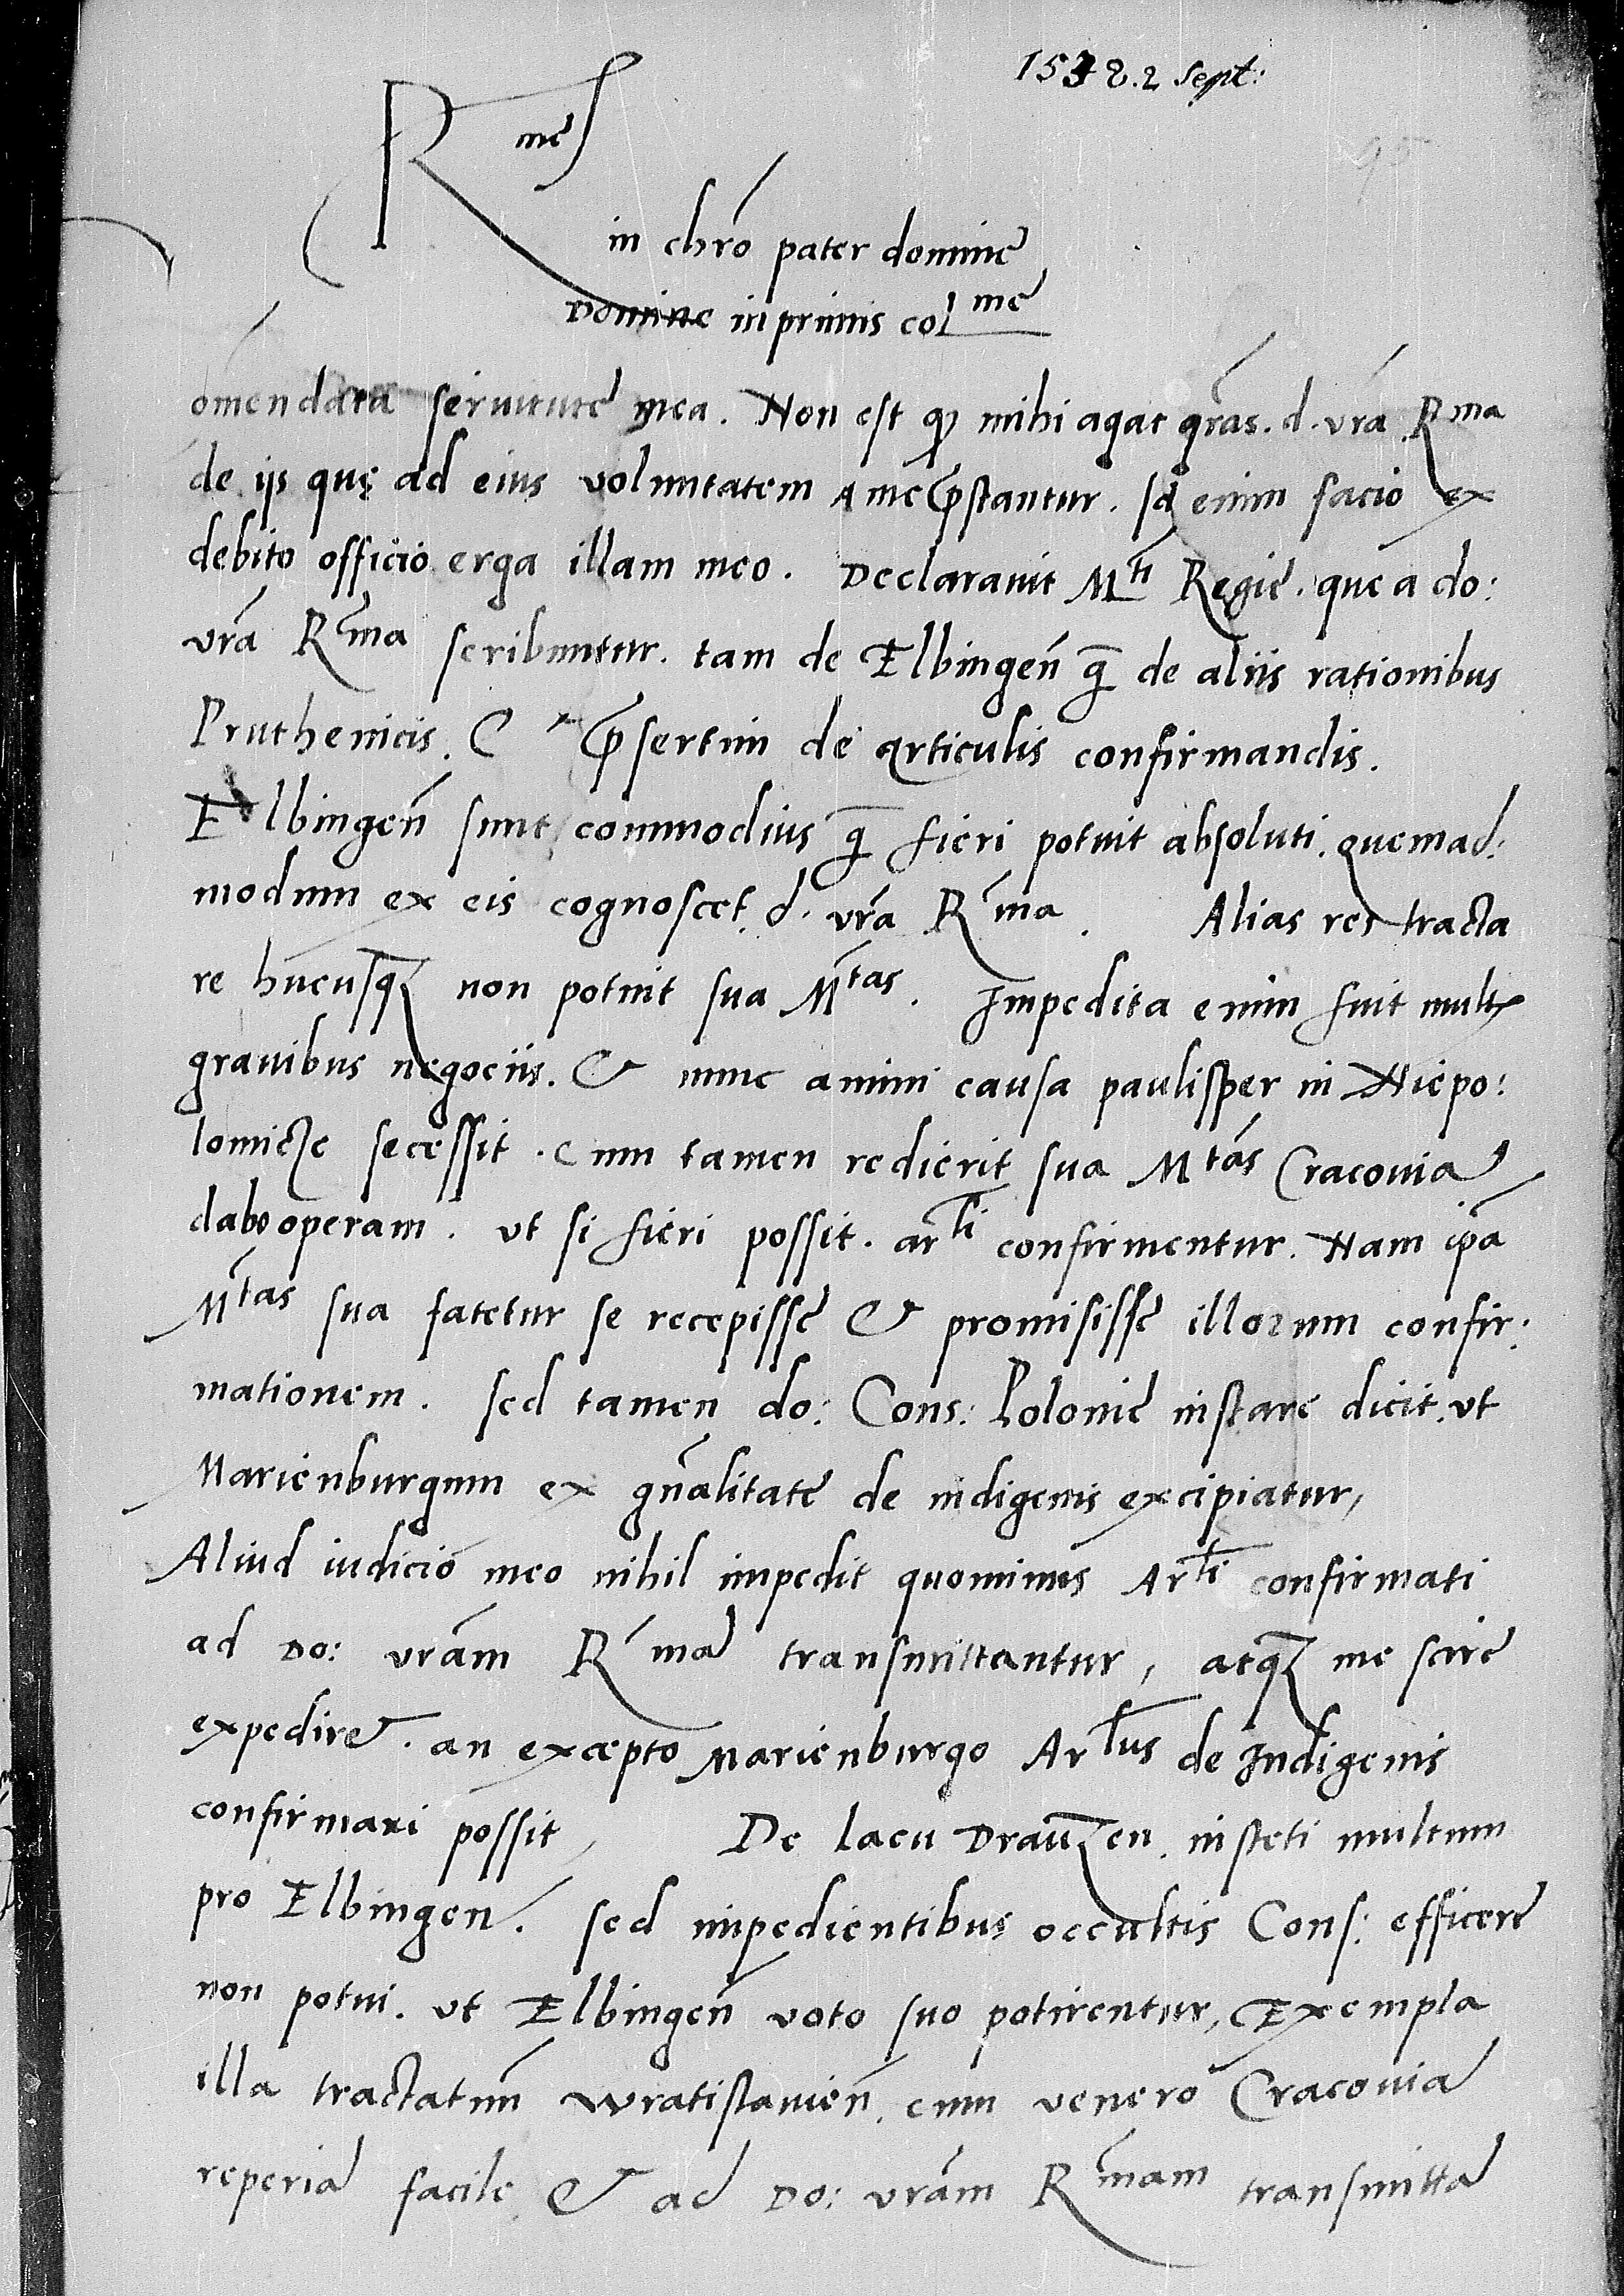 1538. 2 Sept:
95
Rme
in chro pater domine
Domine inprimis colme
omendata seruitute mea. Non est qz mihi agat gras. d. vra Rma
de iis que ad eius voluntatem a me prestantur. Id enim facio ex
debito officio erga illam meo. Declarauit Mti Regie. que a do:
vra Rma scribuntur. tam de Elbingen̄ q̄ de aliis rationibus
Pruthenicis. & presertim de articulis confirmandis.
Elbingen̄ sunt commodius q̄ fieri potuit absoluti. quemad:
modum ex eis cognoscet d. vra Rma. Alias res tracta
re hucusqz non potuit sua Mtas. Impedita enim fuit multis
grauibus negociis. & nunc animi causa paulisper in Niepo:
lomicze secessit. cum tamen redierit sua Mtas Cracouia
dabo operam. vt si fieri possit. arti confirmentur. Nam ipa
Mtas sua fatetur se recepisse & promisisse illorum confir:
mationem. sed tamen do: Cons: Polonie instare dicit. vt
Marienburgum ex gnalitate de indigenis excipiatur,
Aliud iudicio meo nihil impedit quominus Arti confirmati
ad do: vram Rma transmittantur, atqz me scire
expediret. an excepto Marienburgo Artlus de Indigenis
confirmari possit, De lacu Drauzen. insteti multum
pro Elbingen. sed impedientibus occultis Cons: efficere
non potui. vt Elbingen̄ voto suo potirentur, Exempla
illa tractatuū Wratislauien̄. cum venero Cracouia
reperia facile & ad do: vram Rmam transmitta